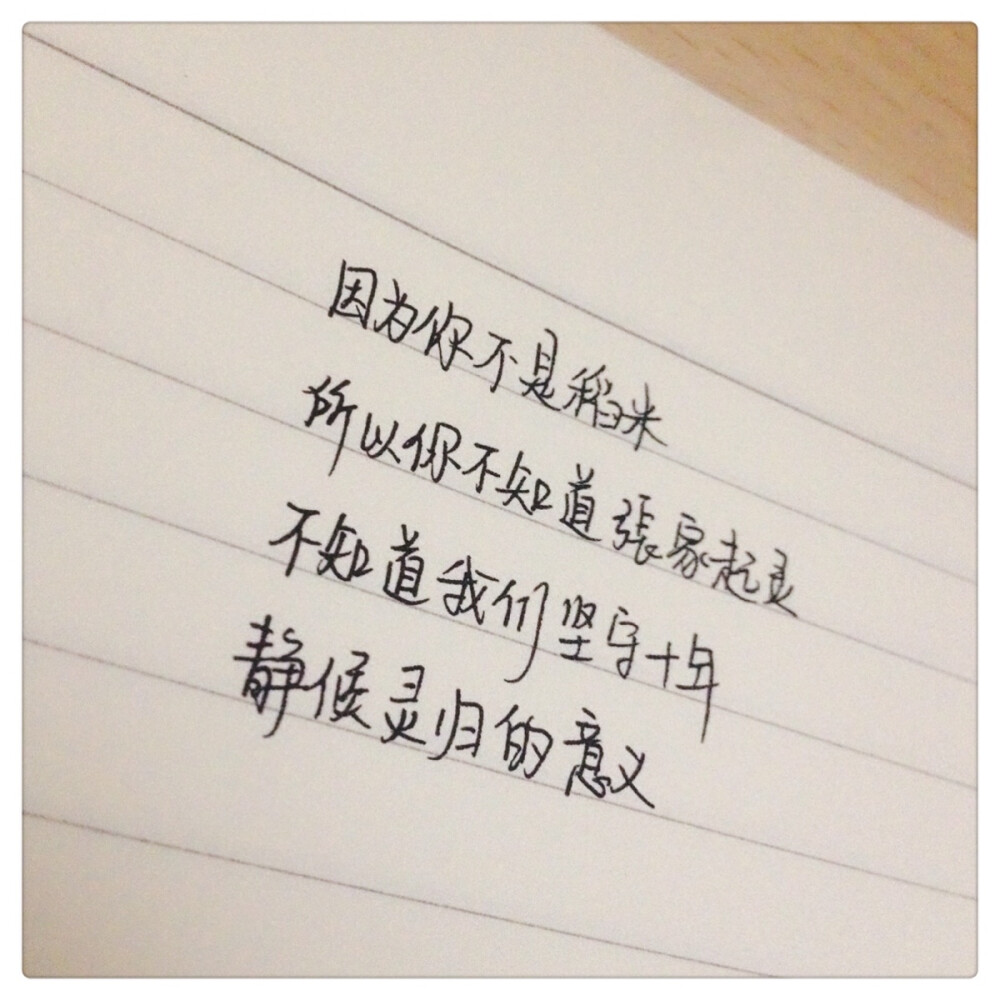 因为你不是稻米
所以你不知道張家起灵
不知道我们坚守十年
静候灵归的意义